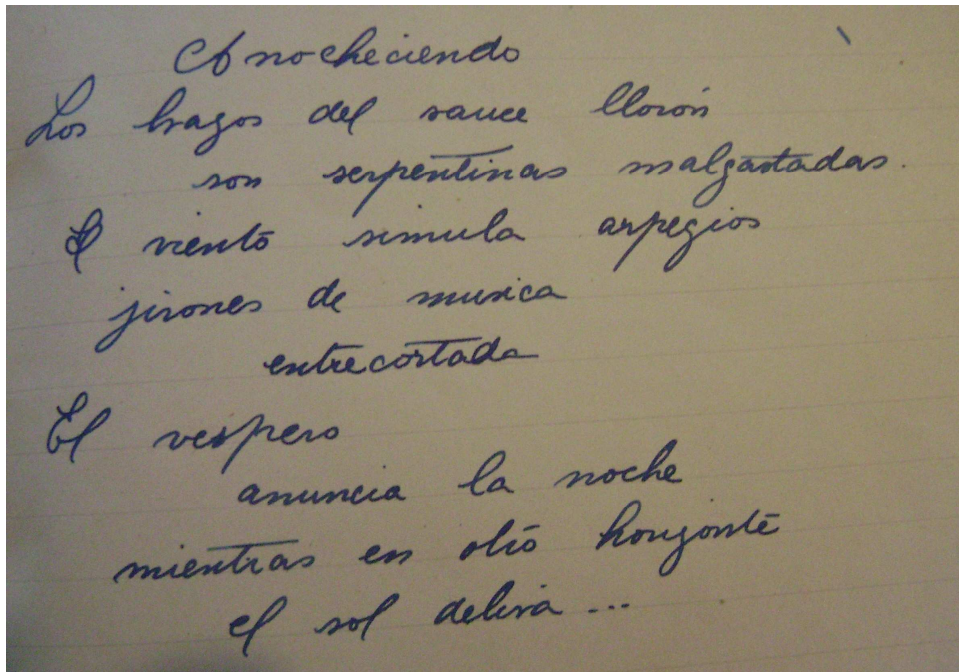 Anocheciendo
Los brazos del sauce llorón
son serpentinas malgastadas.
El viento simula arpegios
jirones de musica
entrecortada
El vespero
anuncia la noche
mientras en otro horizonte
el sol delira...